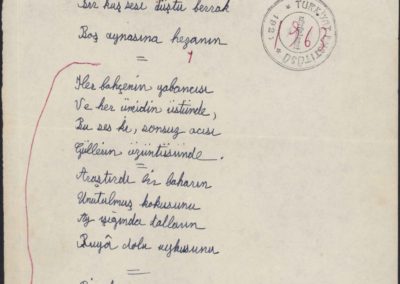 Bir kuş sesi düştü berrak
Boş aynasına hezanın
=
Her bahçenin yabancısı
Ve her ümidin üstünde,
Bu ses ki, sonsuz acısı
Güllerin üzüntüsünde.
=
Araştırdı bir baharın
Unutulmuş kokusunu
Ay ışığında dalların
Ruyâ dolu uykusunu
=
TÜRKİYAT ENSTİTÜSÜ
1921